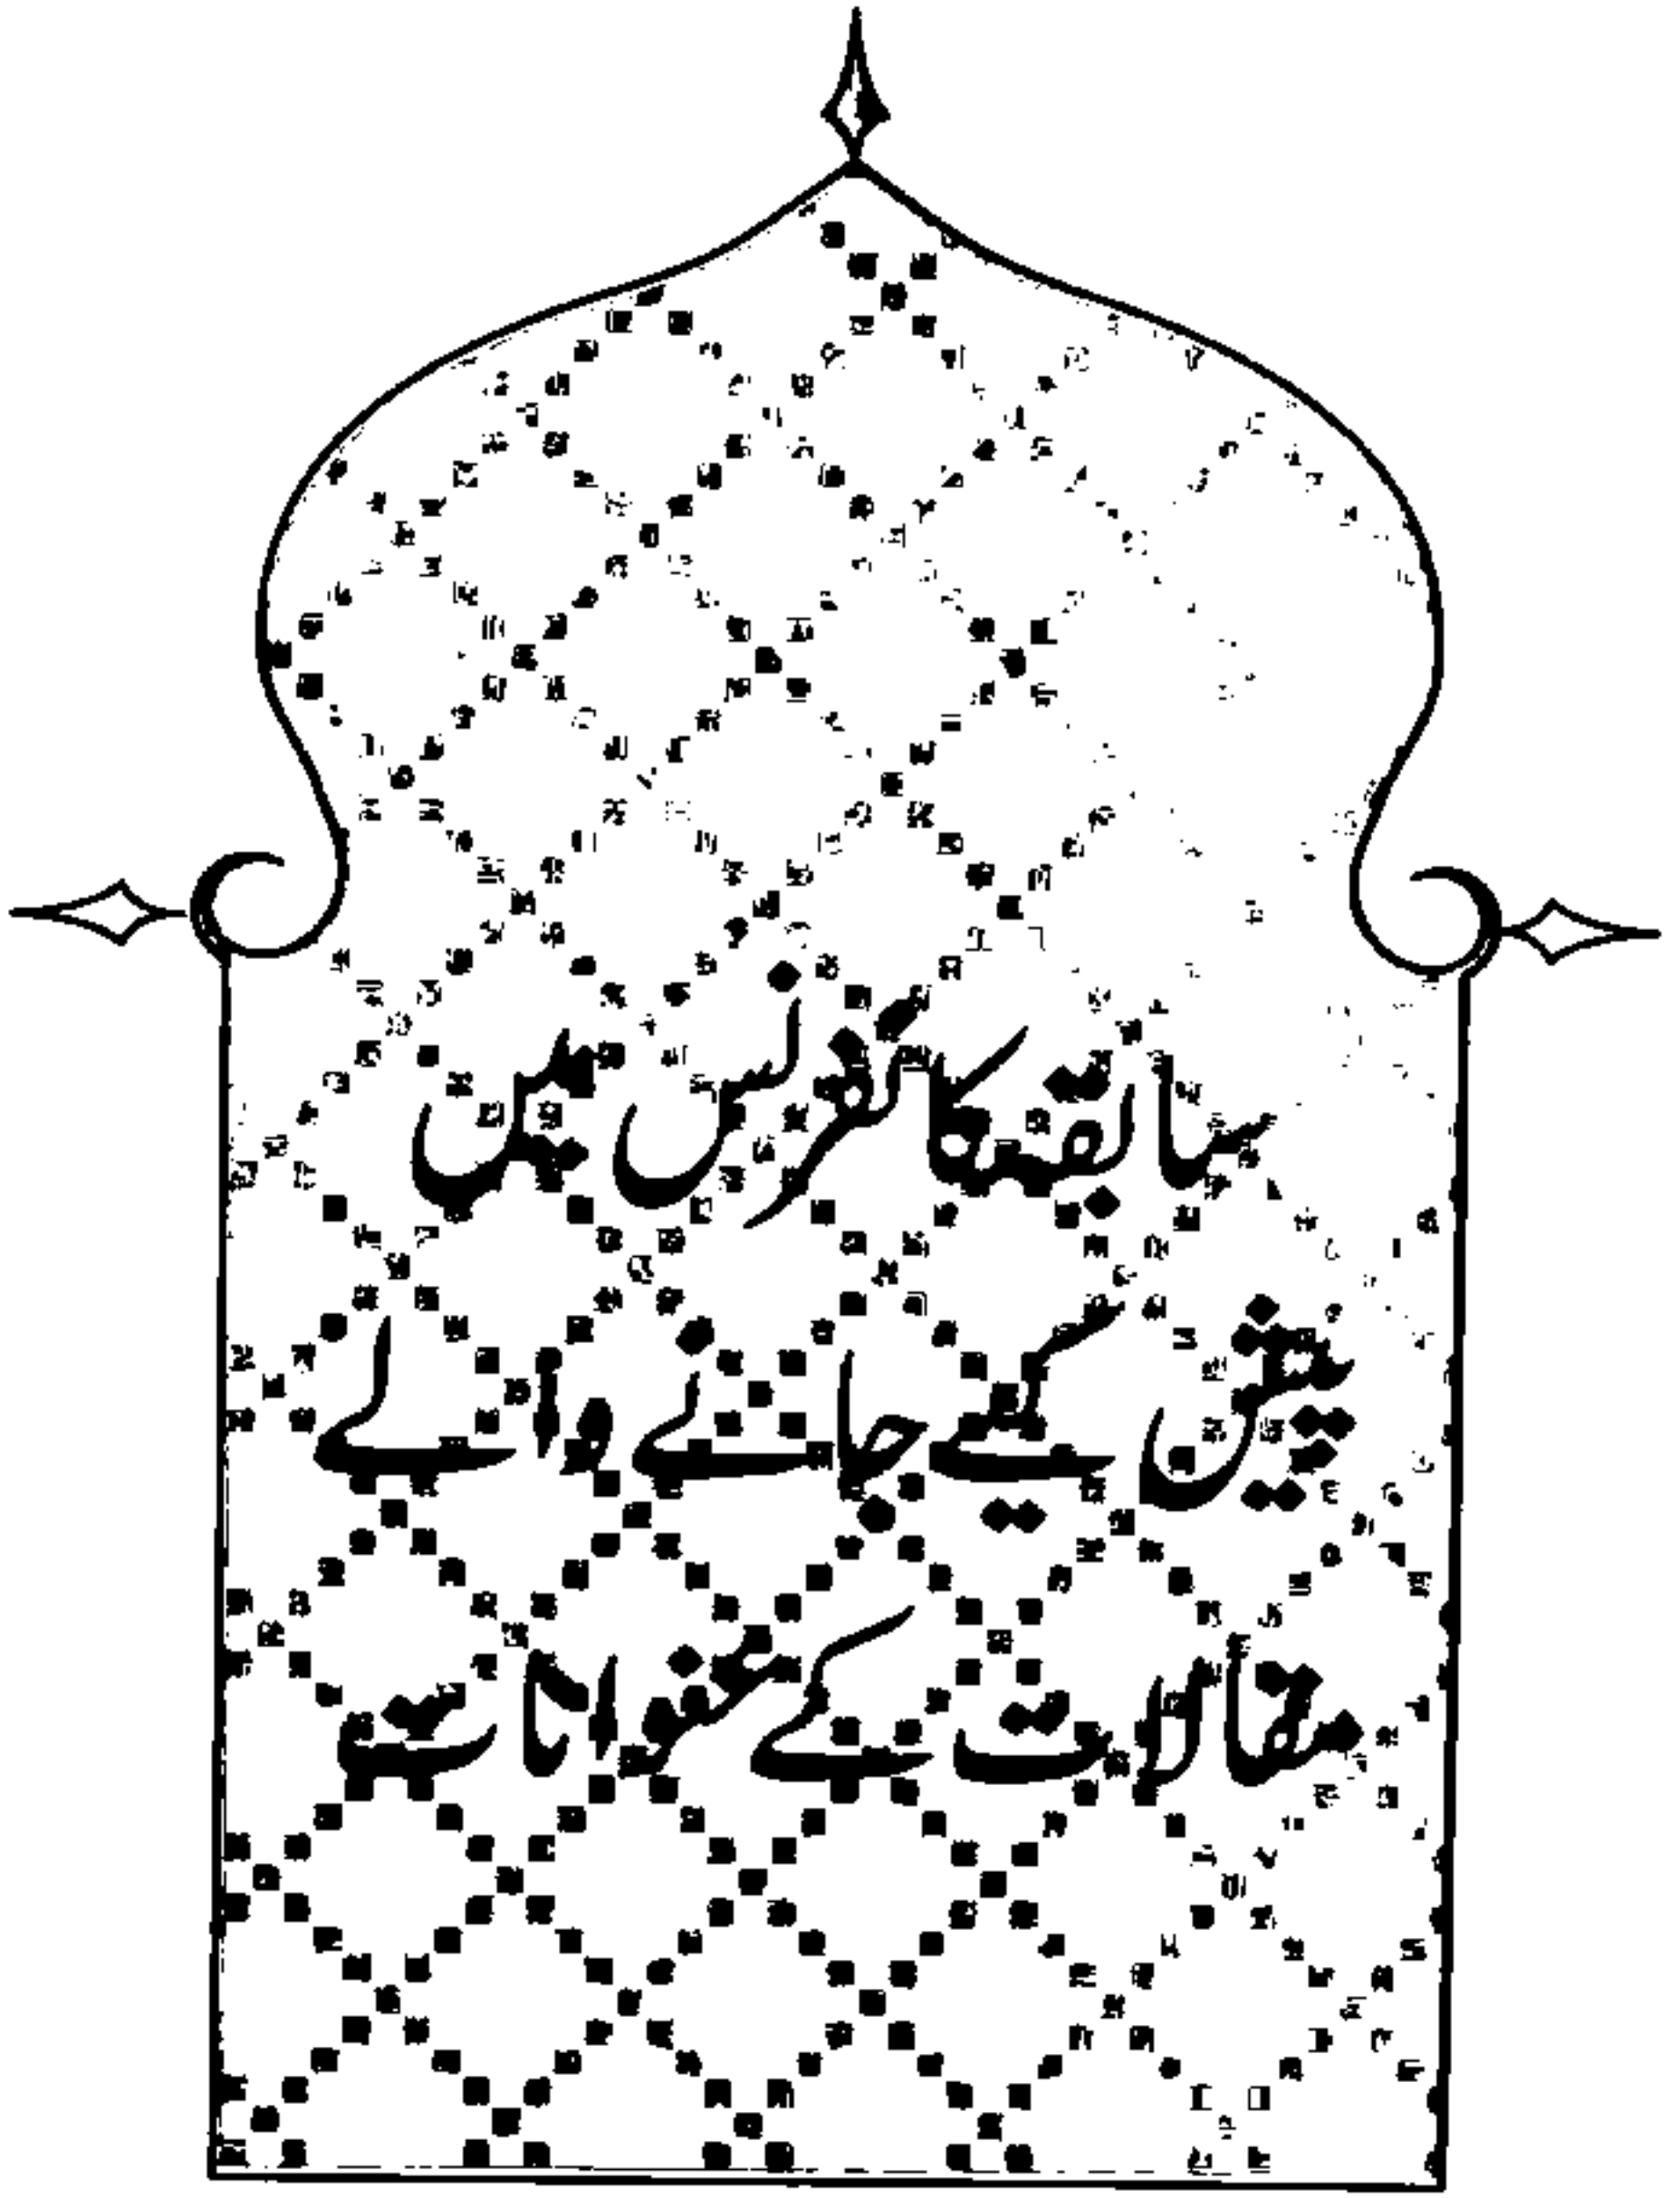 سابقہ کانفرنس میں
پیش کئے جانے والے
مقالات کے عنوانات